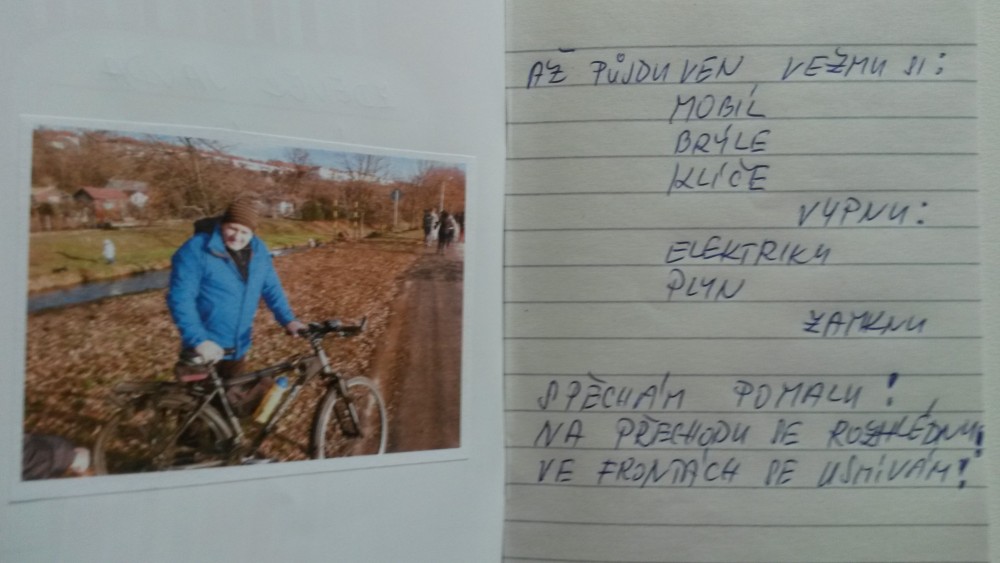 AŽ PŮJDU VEN, VEZMU SI:
MOBIL
BRÝLE
KLÍČE
VYPNU:
ELEKTRIKU
PLYN
ZAMKNU
SPĚCHÁM POMALU!
NA PŘECHODU SE ROZHLÉDNU!
VE FRONTÁCH SE USMÍVÁM!